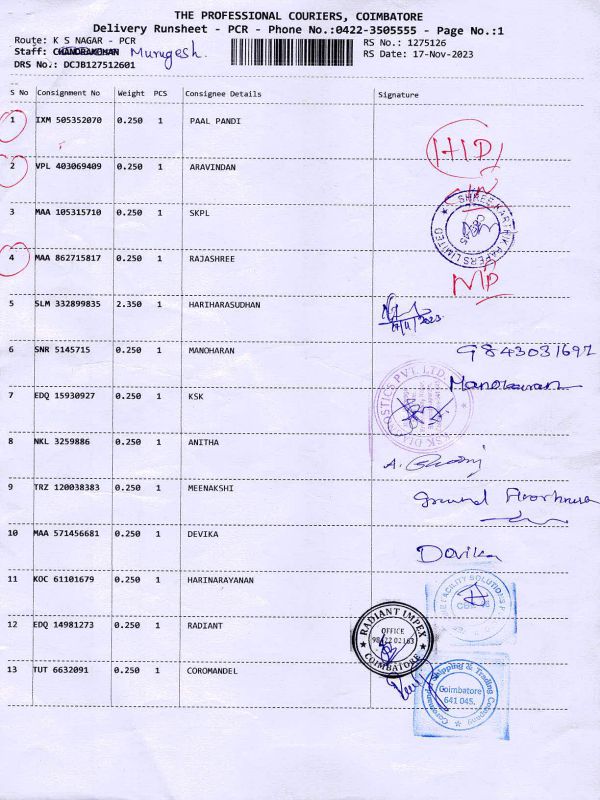 THE PROFESSIONAL COURIERS, COIMBATORE
Delivery Runsheet - PCR - Phone No.:0422-3505555 - Page No.:1
Route: K S NAGAR - PCR
RS No.: 1275126
Staff: CHANDRAKOHAN Murugesh.
RS Date: 17-Nov-2023
DRS No.: DCJB127512601
S No Consignment No Weight PCS Consignee Details Signature
1 IXM 505352070 0.250 1 PAAL PANDI
2 VPL 403069409 0.250 1 ARAVINDAN
3 MAA 105315710 0.250 1 SKPL
SHREE KARTHIK PAPERS LIMITED
4 MAA 862715817 0.250 1 RAJASHREE
5 SLM 332899835 2.350 1 HARIHARASUDHAN
6 SNR 5145715 0.250 1 MANOHARAN
Manoharan
7 EDQ 15930927 0.250 1 KSK
8 NKL 3259886 0.250 1 ANITHA
9 TRZ 120038383 0.250 1 MEENAKSHI
Ground Floor house
10 MAA 571456681 0.250 1 DEVIKA
Devika
11 KOC 61101679 0.250 1 HARINARAYANAN
12 EDQ 14981273 0.250 1 RADIANT
RADIANT IMPEX
OFFICE
COIMBATORE
13 TUT 6632091 0.250 1 COROMANDEL
Coromandel Shipping & Trading Company
Coimbatore
641 045.